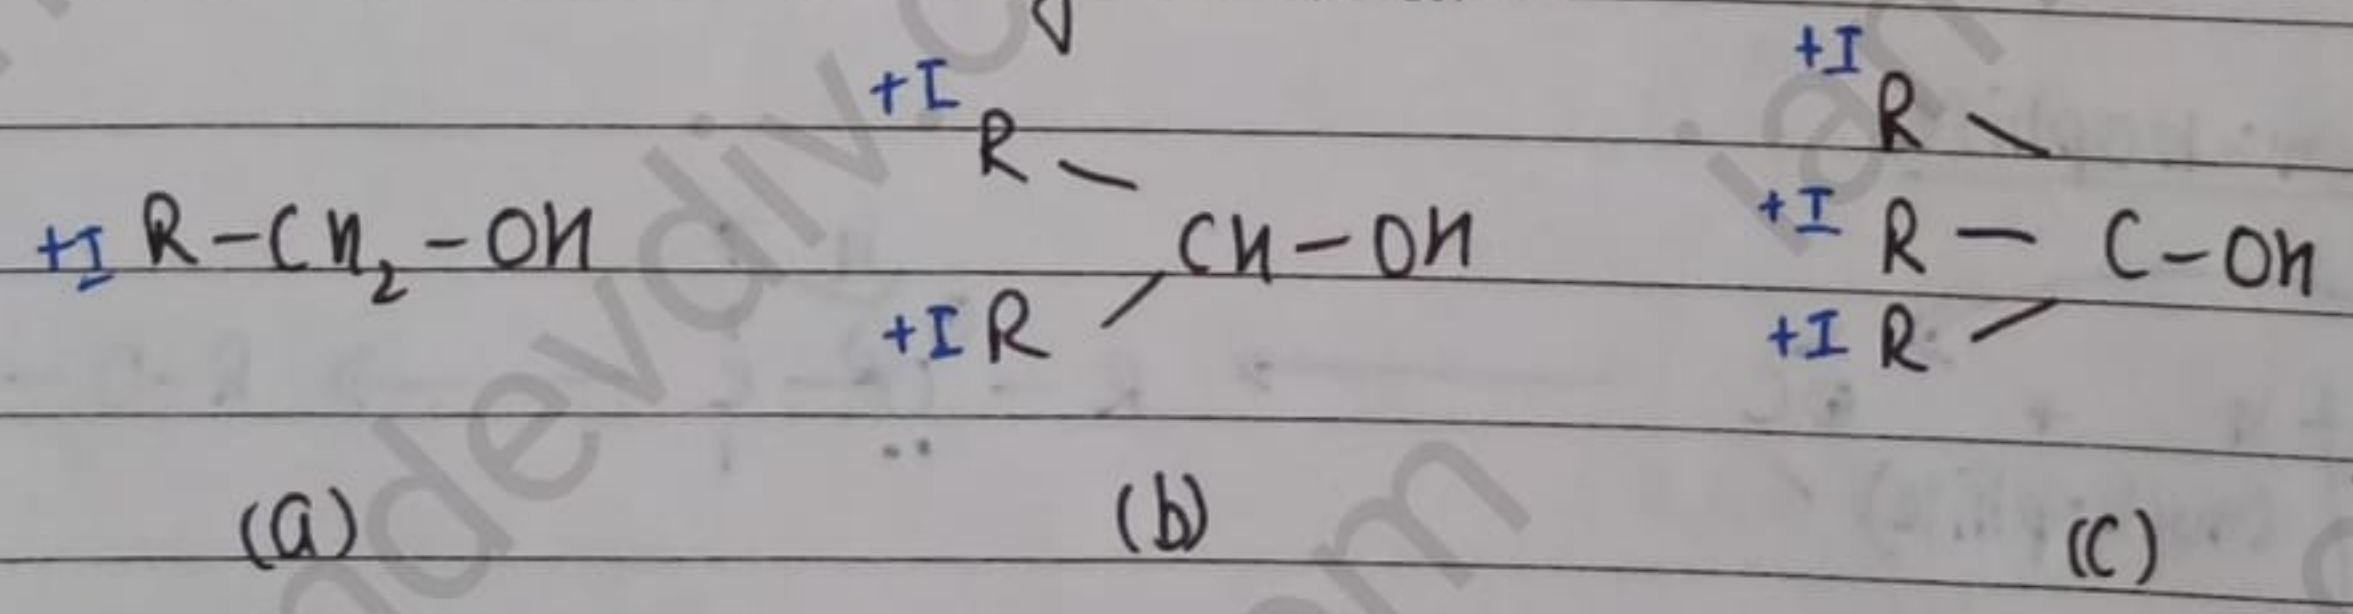 +I R-CH₂-OH
+I R
+I R CH-OH
+I R
+I R - C-OH
+I R
(a) (b) (c)